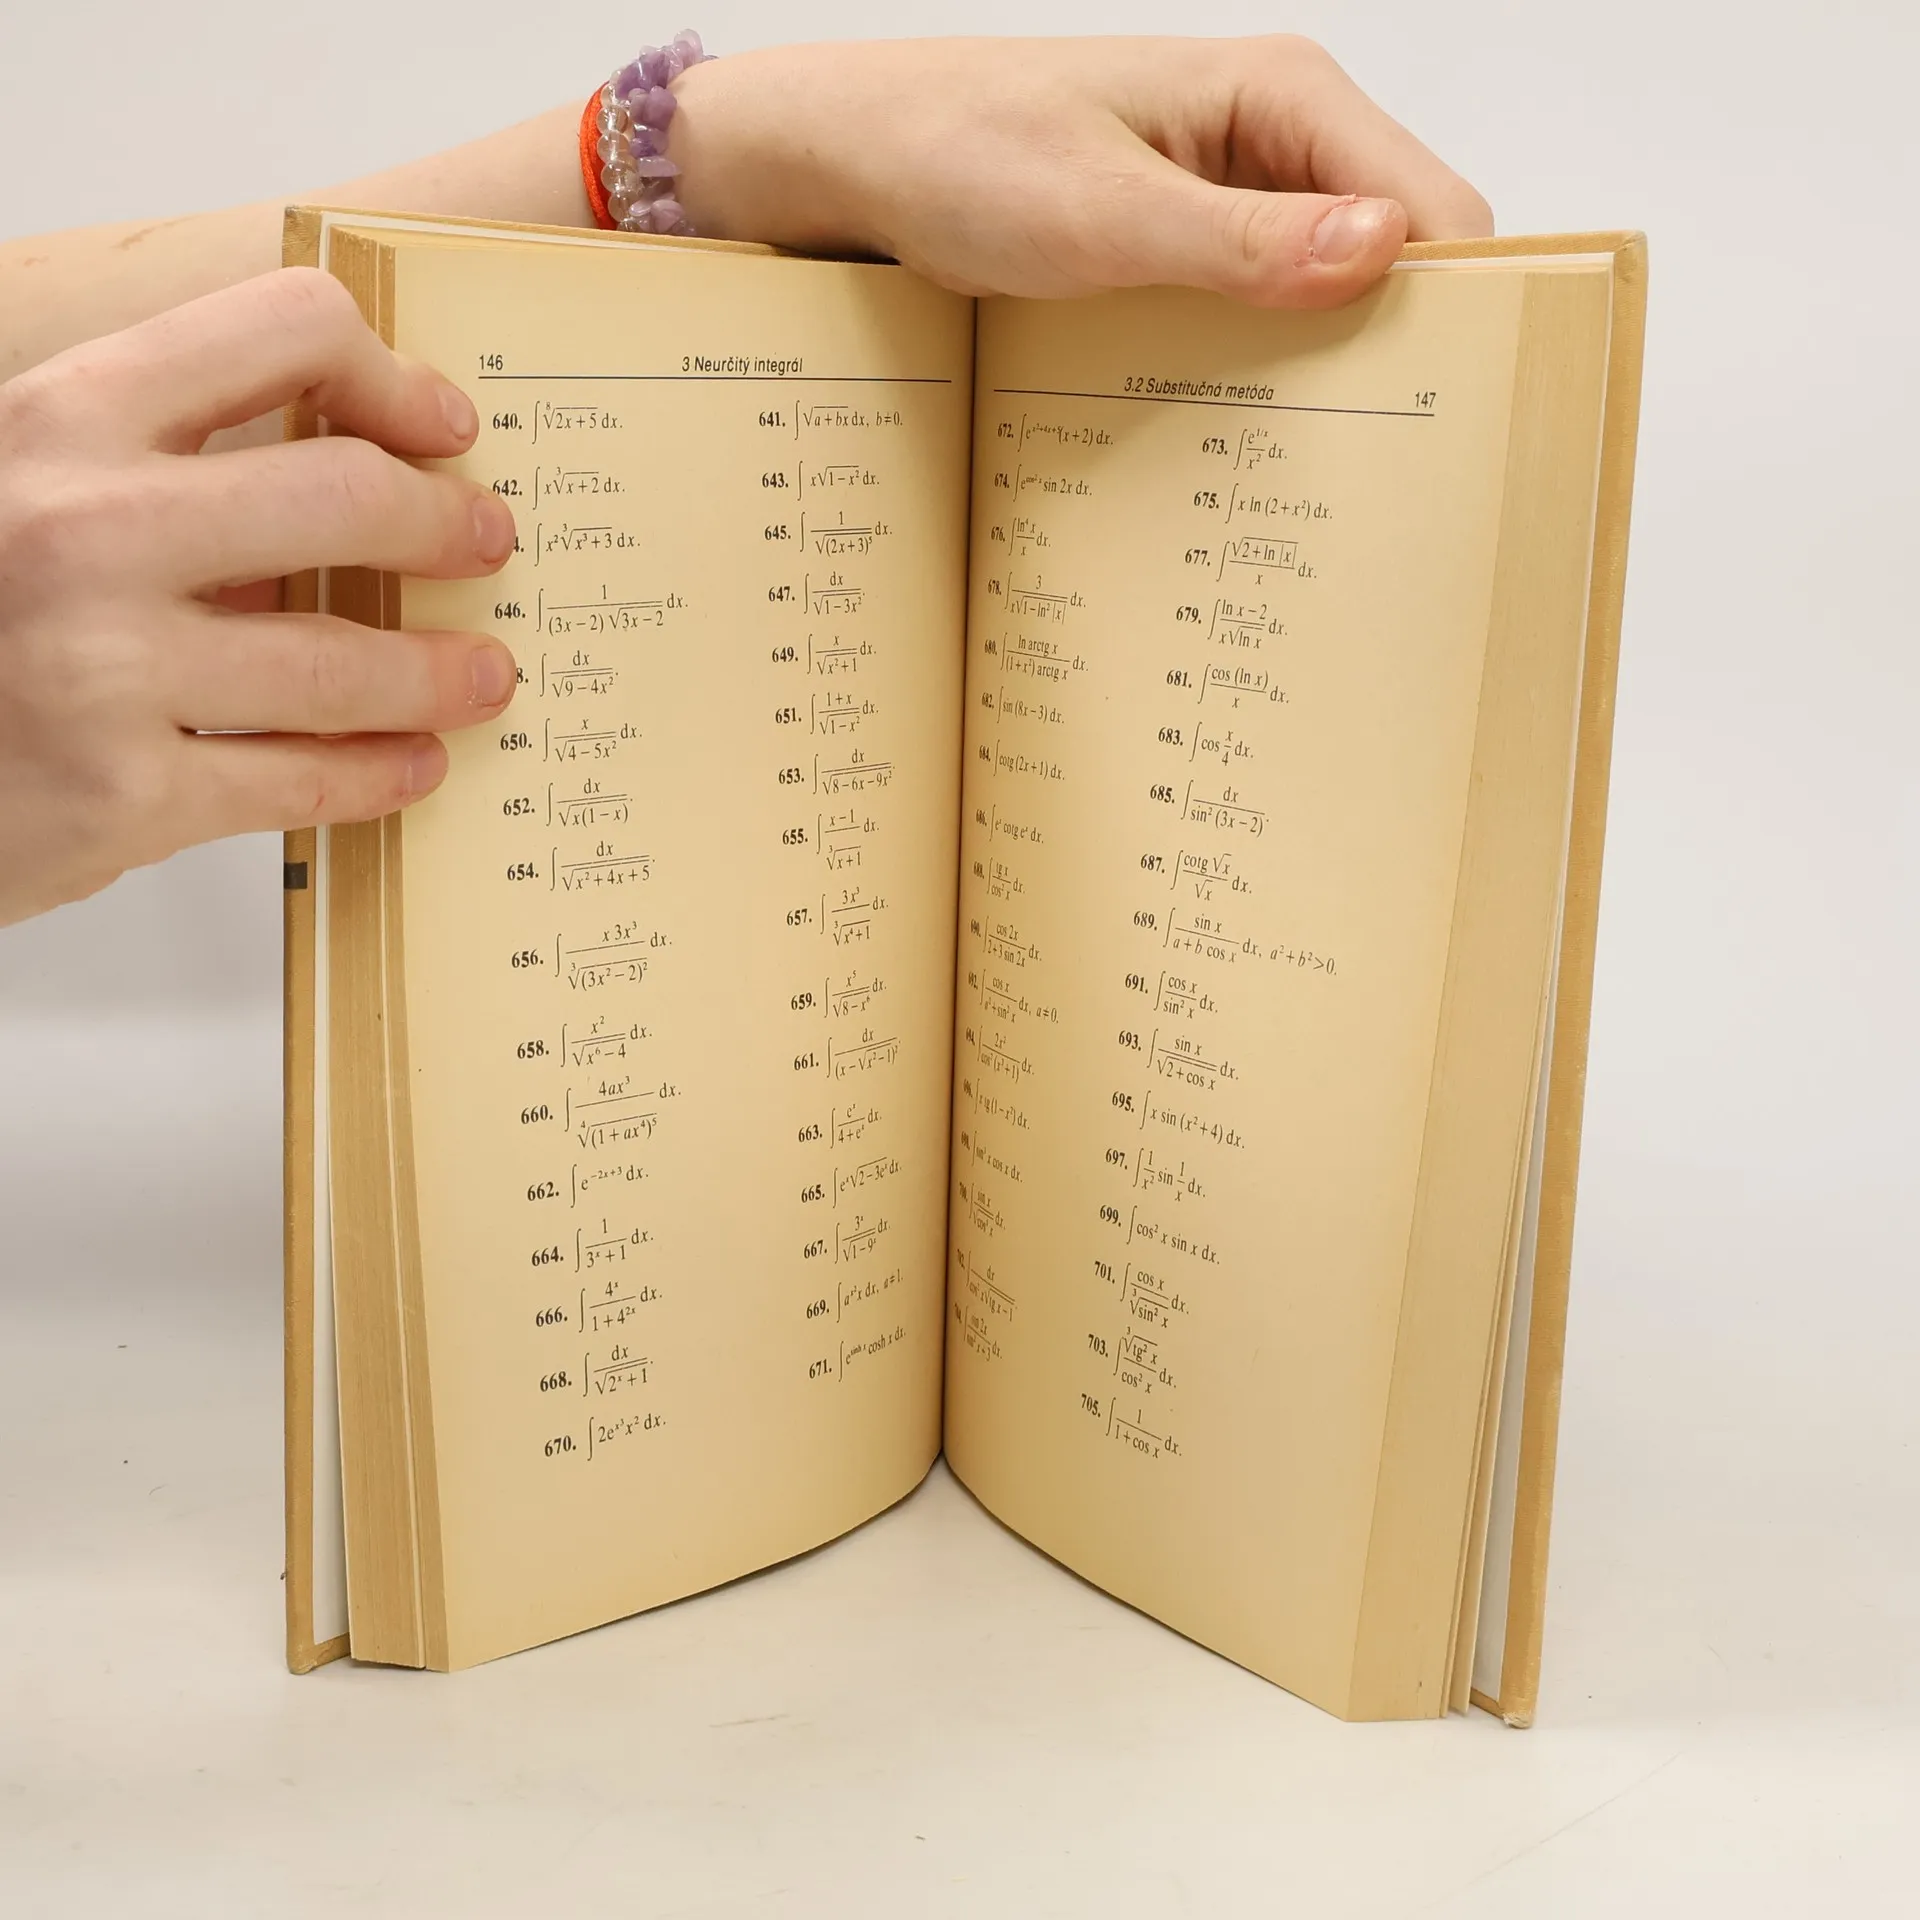 146 3 Neurčitý integrál
640. ∫ ⁸√(2x+5) dx. 641. ∫ √(a+bx) dx, b≠0.
642. ∫ x ³√(x+2) dx. 643. ∫ x√(1−x²) dx.
4. ∫ x² ³√(x³+3) dx. 645. ∫ 1/√((2x+3)⁵) dx.
646. ∫ 1/((3x−2)√(3x−2)) dx. 647. ∫ dx/√(1−3x²).
8. ∫ dx/√(9−4x²). 649. ∫ x/√(x²+1) dx.
650. ∫ x/√(4−5x²) dx. 651. ∫ (1+x)/√(1−x²) dx.
652. ∫ dx/√(x(1−x)). 653. ∫ dx/√(8−6x−9x²).
654. ∫ dx/√(x²+4x+5). 655. ∫ (x−1)/³√(x+1) dx.
656. ∫ x 3x³/³√((3x²−2)²) dx. 657. ∫ 3x³/³√(x⁴+1) dx.
658. ∫ x²/√(x⁶−4) dx. 659. ∫ x⁵/√(8−x⁶) dx.
660. ∫ 4ax³/⁴√((1+ax⁴)⁵) dx. 661. ∫ dx/(x−√(x²−1))².
662. ∫ e^(−2x+3) dx. 663. ∫ eˣ/(4+eˣ) dx.
664. ∫ 1/(3ˣ+1) dx. 665. ∫ eˣ√(2−3eˣ) dx.
666. ∫ 4ˣ/(1+4²ˣ) dx. 667. ∫ 3ˣ/√(1−9ˣ) dx.
668. ∫ dx/√(2ˣ+1). 669. ∫ a^(x²) x dx, a≠1.
670. ∫ 2e^(x³) x² dx. 671. ∫ e^(sinh x) cosh x dx.
3.2 Substitučná metóda 147
672. ∫ e^(x²+4x+5)(x+2) dx. 673. ∫ e^(1/x)/x² dx.
674. ∫ sin 2x dx. 675. ∫ x ln (2+x²) dx.
676. ∫ ln⁴ x/x dx. 677. ∫ √(2+ln |x|)/x dx.
678. ∫ 3/(x√(1−ln² |x|)) dx. 679. ∫ (ln x−2)/(x√(ln x)) dx.
680. ∫ ln arctg x/((1+x²) arctg x) dx. 681. ∫ cos (ln x)/x dx.
682. ∫ sin (8x−3) dx. 683. ∫ cos x/4 dx.
684. ∫ cotg (2x+1) dx. 685. ∫ dx/sin² (3x−2).
686. ∫ eˣ cotg eˣ dx. 687. ∫ cotg √x/√x dx.
688. ∫ tg x/cos² x dx. 689. ∫ sin x/(a+b cos x) dx, a²+b²>0.
690. ∫ cos 2x/(2+3 sin 2x) dx. 691. ∫ cos x/sin² x dx.
692. ∫ cos x/(a²+sin² x) dx, a≠0. 693. ∫ sin x/√(2+cos x) dx.
694. ∫ dx. 695. ∫ x sin (x²+4) dx.
696. ∫ x tg (1−x²) dx. 697. ∫ 1/x² sin 1/x dx.
698. ∫ x cos x dx. 699. ∫ cos² x sin x dx.
700. ∫ dx. 701. ∫ cos x/³√(sin² x) dx.
702. ∫ dx 703. ∫ ³√(tg² x)/cos² x dx.
∫ dx. 705. ∫ 1/(1+cos x) dx.